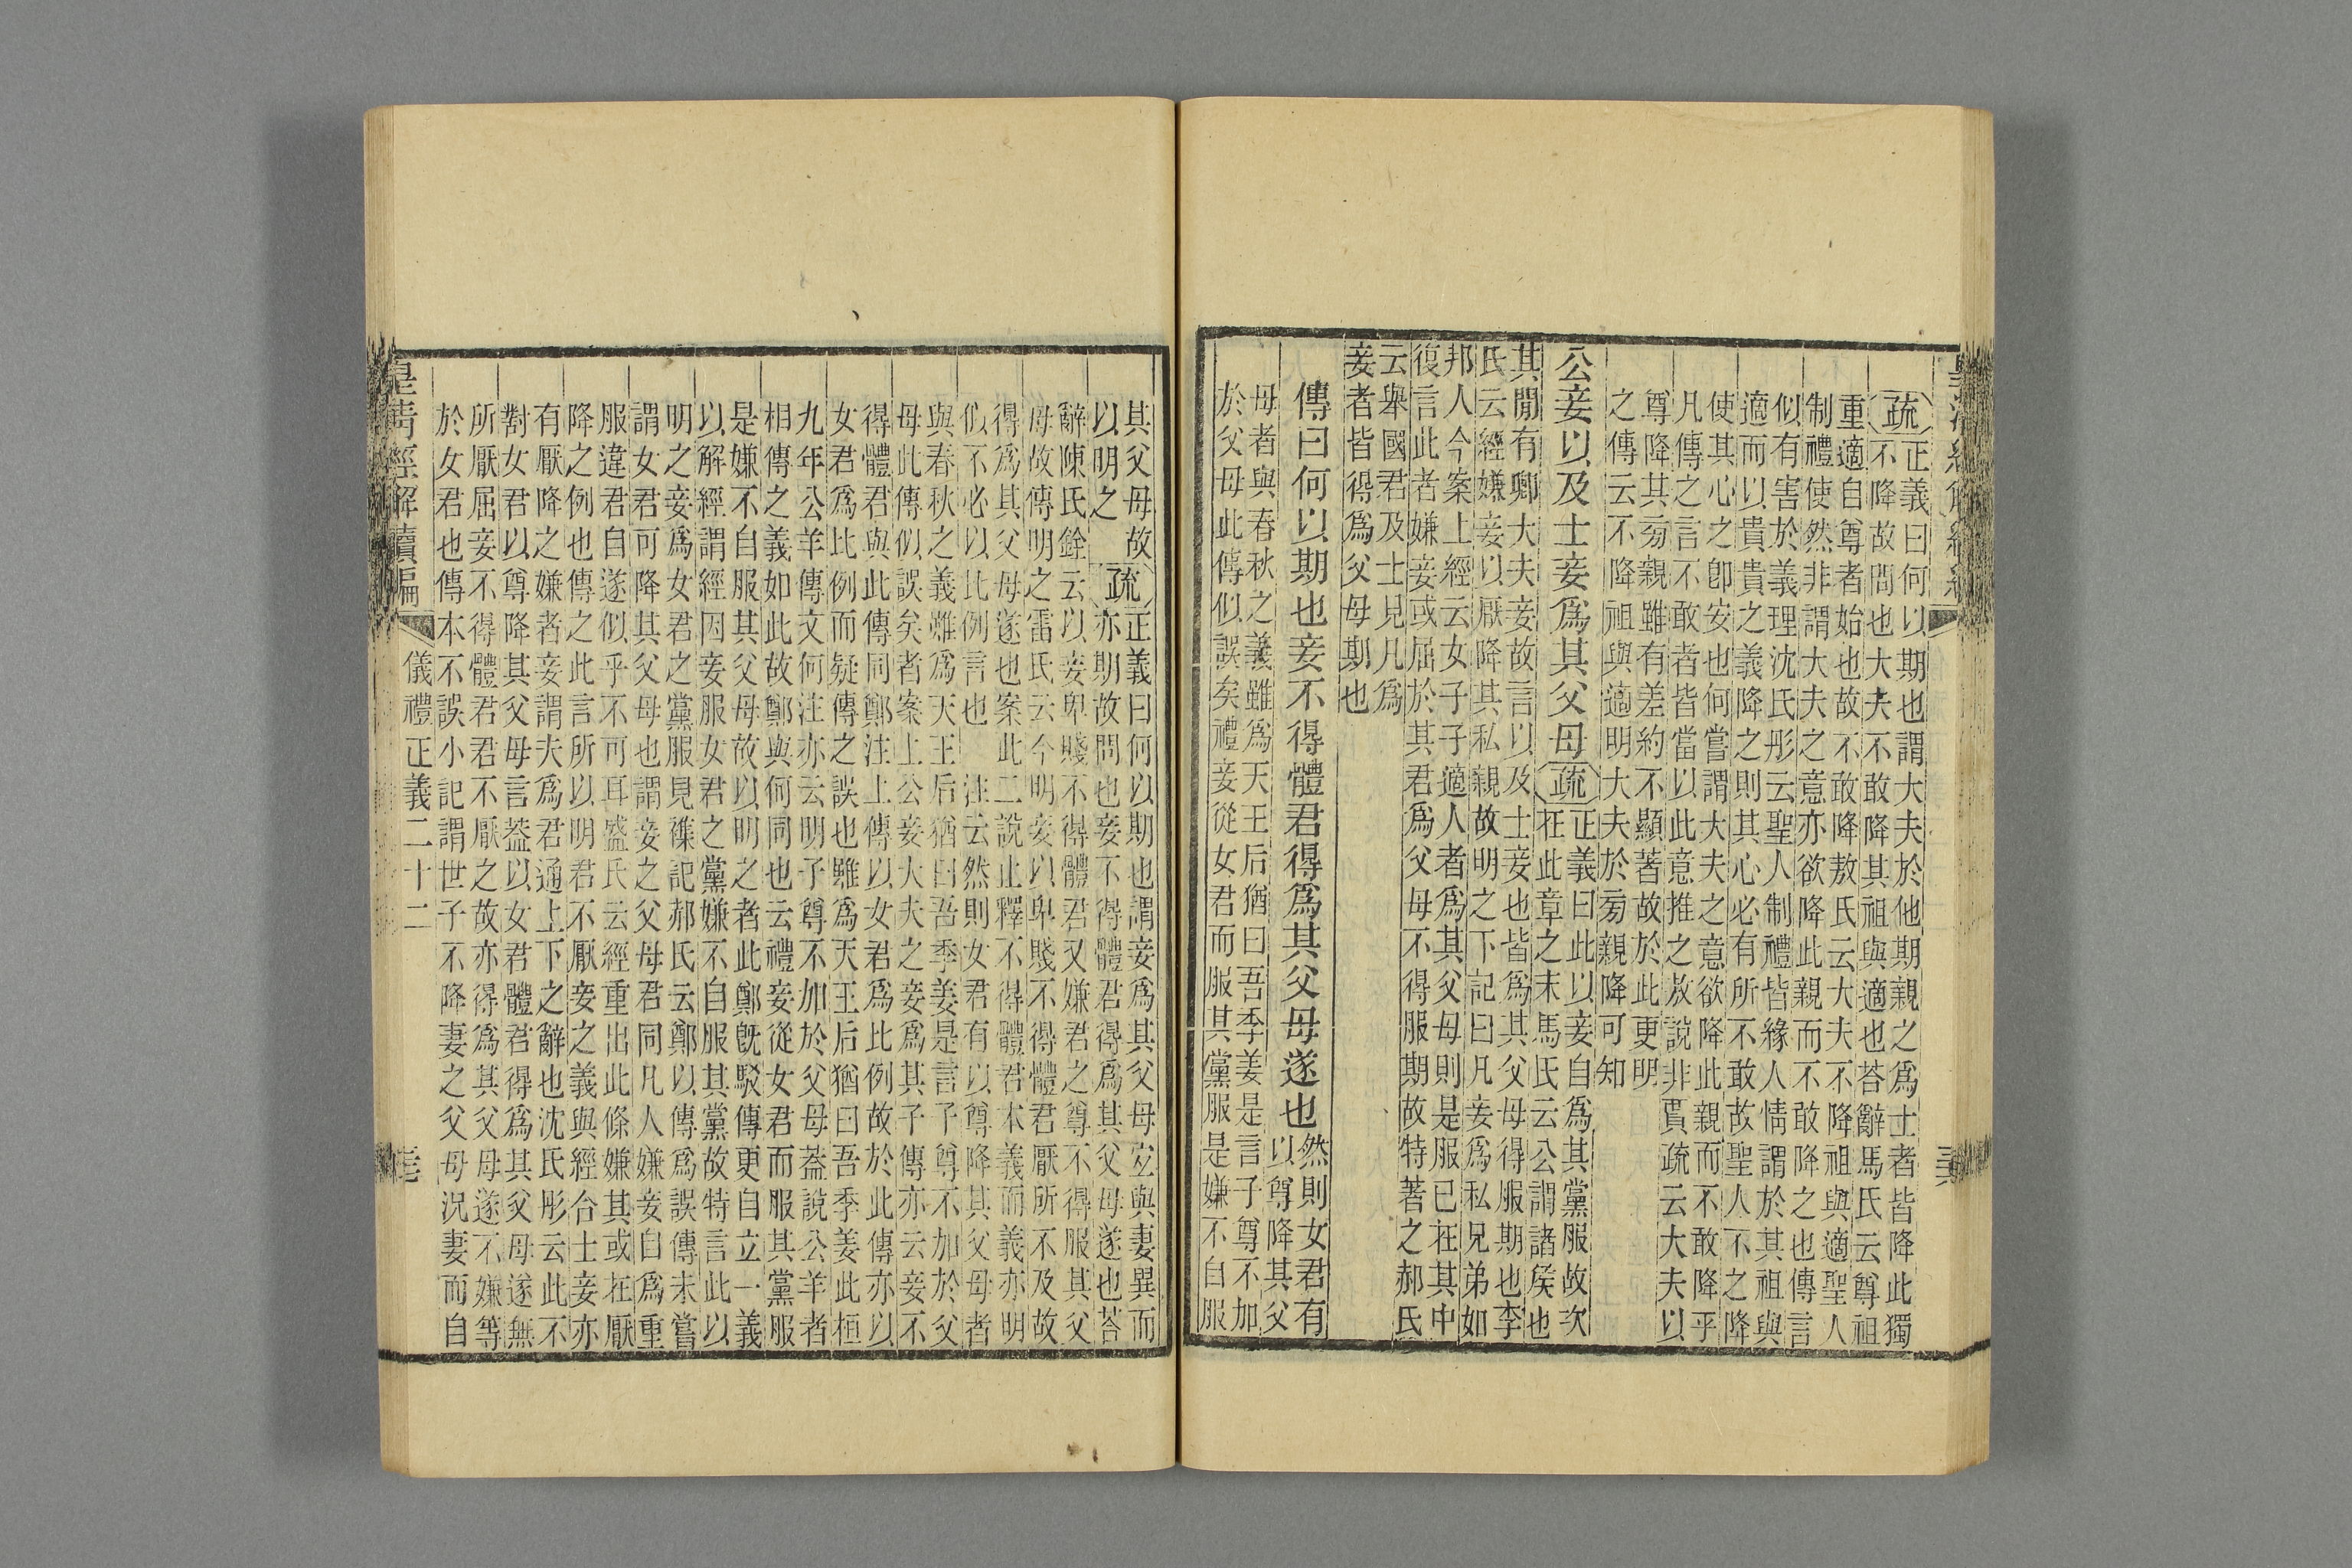 疏正義曰何以期也謂大夫於他期親之爲士者皆降此獨
不降故問也大夫不敢降其祖與適也荅辭馬氏云尊祖
重適自尊者始也故不敢降敖氏云大夫不降祖與適聖人
制禮使然非謂大夫之意亦欲降此親而不敢降之也傳言
似有害於義理沈氏彤云聖人制禮皆緣人情謂於其祖與
適而以貴貴之義降之則其心必有所不敢故聖人不之降
使其心之卽安也何嘗謂大夫之意欲降此親而不敢降乎
凡傳之言不敢者皆當以此意推之敖說非賈疏云大夫以
尊降其旁親雖有差約不顯著故於此更明
之傳云不降祖與適明大夫於旁親降可知
公妾以及士妾爲其父母疏
正義曰此以妾自爲其黨服故次
在此章之末馬氏云公謂諸矦也
其閒有卿大夫妾故言以及士妾也皆爲其父母得服期也李
氏云經嫌妾以厭降其私親故明之下記曰凡妾爲私兄弟如
邦人今案上經云女子子適人者爲其父母則是服已在其中
復言此者嫌妾或屈於其君爲父母不得服期故特著之郝氏
云舉國君及士見凡爲
妾者皆得爲父母期也
傳曰何以期也妾不得體君得爲其父母遂也
然則女君有
以尊降其父
母者與春秋之義雖爲天王后猶曰吾季姜是言子尊不加
於父母此傳似誤矣禮妾從女君而服其黨服是嫌不自服
其父母故
以明之
疏正義曰何以期也謂妾爲其父母宐與妻異而
亦期故問也妾不得體君得爲其父母遂也荅
辭陳氏銓云以妾卑賤不得體君又嫌君之尊不得服其父
母故傳明之雷氏云今明妾以卑賤不得體君厭所不及故
得爲其父母遂也案此二說止釋不得體君本義而義亦明
似不必以比例言也 注云然則女君有以尊降其父母者
與春秋之義雖爲天王后猶曰吾季姜是言子尊不加於父
母此傳似誤矣者案上公妾大夫之妾爲其子傳亦云妾不
得體君與此傳同鄭注上傳以女君爲比例故於此傳亦以
女君爲比例而疑傳之誤也雖爲天王后猶曰吾季姜此桓
九年公羊傳文何注亦云明子尊不加於父母葢說公羊者
相傳之義如此故鄭與何同也云禮妾從女君而服其黨服
是嫌不自服其父母故以明之者此鄭旣駁傳更自立一義
以解經謂經因妾服女君之黨嫌不自服其黨故特言此以
明之妾爲女君之黨服見襍記郝氏云鄭以傳爲誤傳未嘗
謂女君可降其父母也謂妾之父母君同凡人嫌妾自爲重
服違君自遂似乎不可耳盛氏云經重出此條嫌其或在厭
降之例也傳之此言所以明君不厭妾之義與經合士妾亦
有厭降之嫌者妾謂夫爲君通上下之辭也沈氏彤云此不
對女君以尊降其父母言葢以女君體君得爲其父母遂無
所厭屈妾不得體君君不厭之故亦得爲其父母遂不嫌等
於女君也傳本不誤小記謂世子不降妻之父母況妻而自
皇清經解續編
儀禮正義二十二